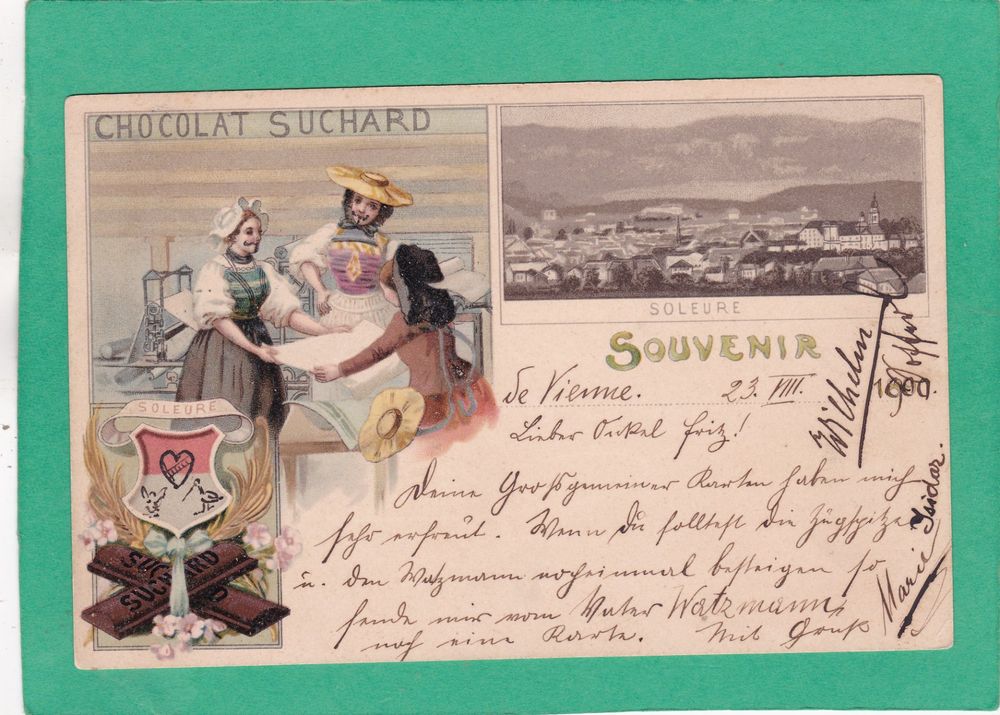 CHOCOLAT SUCHARD
SOLEURE
SOUVENIR
de Vienne. 23. VIII. 1900.
Lieber Onkel Fritz!
Deine Großgemeiner Karten haben mich
sehr erfreut. Wenn Du solltest die Zugspitze
u. den Watzmann nocheinmal besteigen so
sende mir vom Vater Watzmann
noch eine Karte. Mit Gruß
Wilhelm
Marie Isidor.
SOLEURE
SUCHARD
SUCHARD